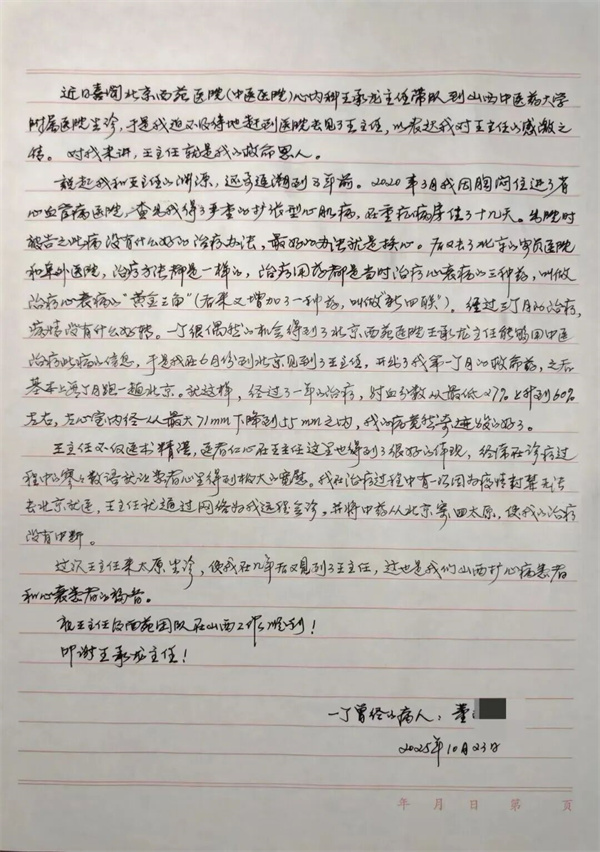 近日喜闻北京西苑医院(中医医院)心内科王承龙主任带队到山西中医药大学
附属医院坐诊，于是我迫不及待地赶到医院去见了王主任，以表达我对王主任的感激之
情。对我来讲，王主任就是我的救命恩人。
说起我和王主任的渊源，还要追溯到5年前。2020年3月我因胸闷住进了省
心血管病医院，查出我得了严重的扩张型心肌病，在重症病房住了十几天。出院时
被告之此病没有什么好的治疗办法，最好的办法就是换心。后又去了北京的安贞医院
和阜外医院，治疗方法都是一样的，治疗用药都是当时治疗心衰病的三种药，叫做
治疗心衰病的"黄金三角"(后来又增加了一种药，叫做"新四联")。经过三个月的治疗，
病情没有什么好转。一个很偶然的机会得到了北京西苑医院王承龙主任能够用中医
治疗此病的信息，于是我在6月份到北京见到了王主任，开出了我第一个月的救命药，之后
基本上每个月跑一趟北京。就这样，经过了一年的治疗，射血分数从最低27%上升到60%
左右，左心室内径从最大71mm下降到55mm之内，我的病竟然奇迹般的好了。
王主任不仅医术精湛，医者仁心在王主任这里也得到了很好的体现，经常在诊疗过
程中的寥寥数语就让患者心里得到极大的宽慰。我在治疗过程中有一次因为疫情封禁无法
去北京就医，王主任就通过网络为我远程会诊，并将中药从北京寄回太原，使我的治疗
没有中断。
这次王主任来太原坐诊，使我在几年后又见到了王主任，这也是我们山西扩心病患者
和心衰患者的福音。
祝王主任及西苑团队在山西工作顺利！
叩谢王承龙主任！
一个曾经的病人：董
2025年10月23日
年 月 日 第 页